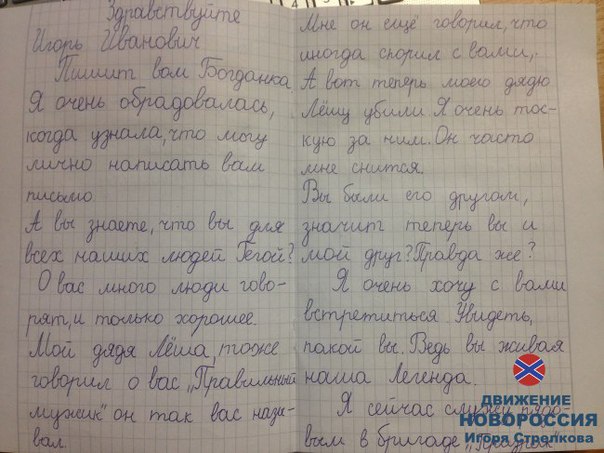 Здравствуйте
Игорь Иванович
Пишит вам Богданка
Я очень обрадовалась,
когда узнала, что могу
лично написать вам
письмо
А вы знаете, что вы для
всех наших людей Герой?
О вас много люди гово-
рят, и только хорошее.
Мой дядя Лёша, тоже
говорил о вас „Правильный
мужик" он так вас назы-
вал.
Мне он ещё говорил, что
иногда спорил с вами,.
А вот теперь моего дядю
Лёшу убили. Я очень тос-
кую за ним. Он часто
мне снится.
Вы были его другом,
значит теперь вы и
мой друг? Правда же?
Я очень хочу с вами
встретиться. Увидеть,
какой вы. Ведь вы живая
наша Легенда.
Я сейчас служу рядо-
вым в бригаде
ДВИЖЕНИЕ
НОВОРОССИЯ
Игоря Стрелкова